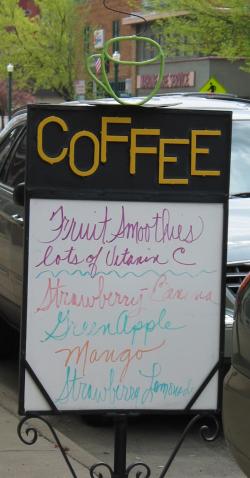 COFFEE
Fruit Smoothies
lots of Vitamin C
Strawberry-Banana
Green Apple
Mango
Strawberry Lemonade